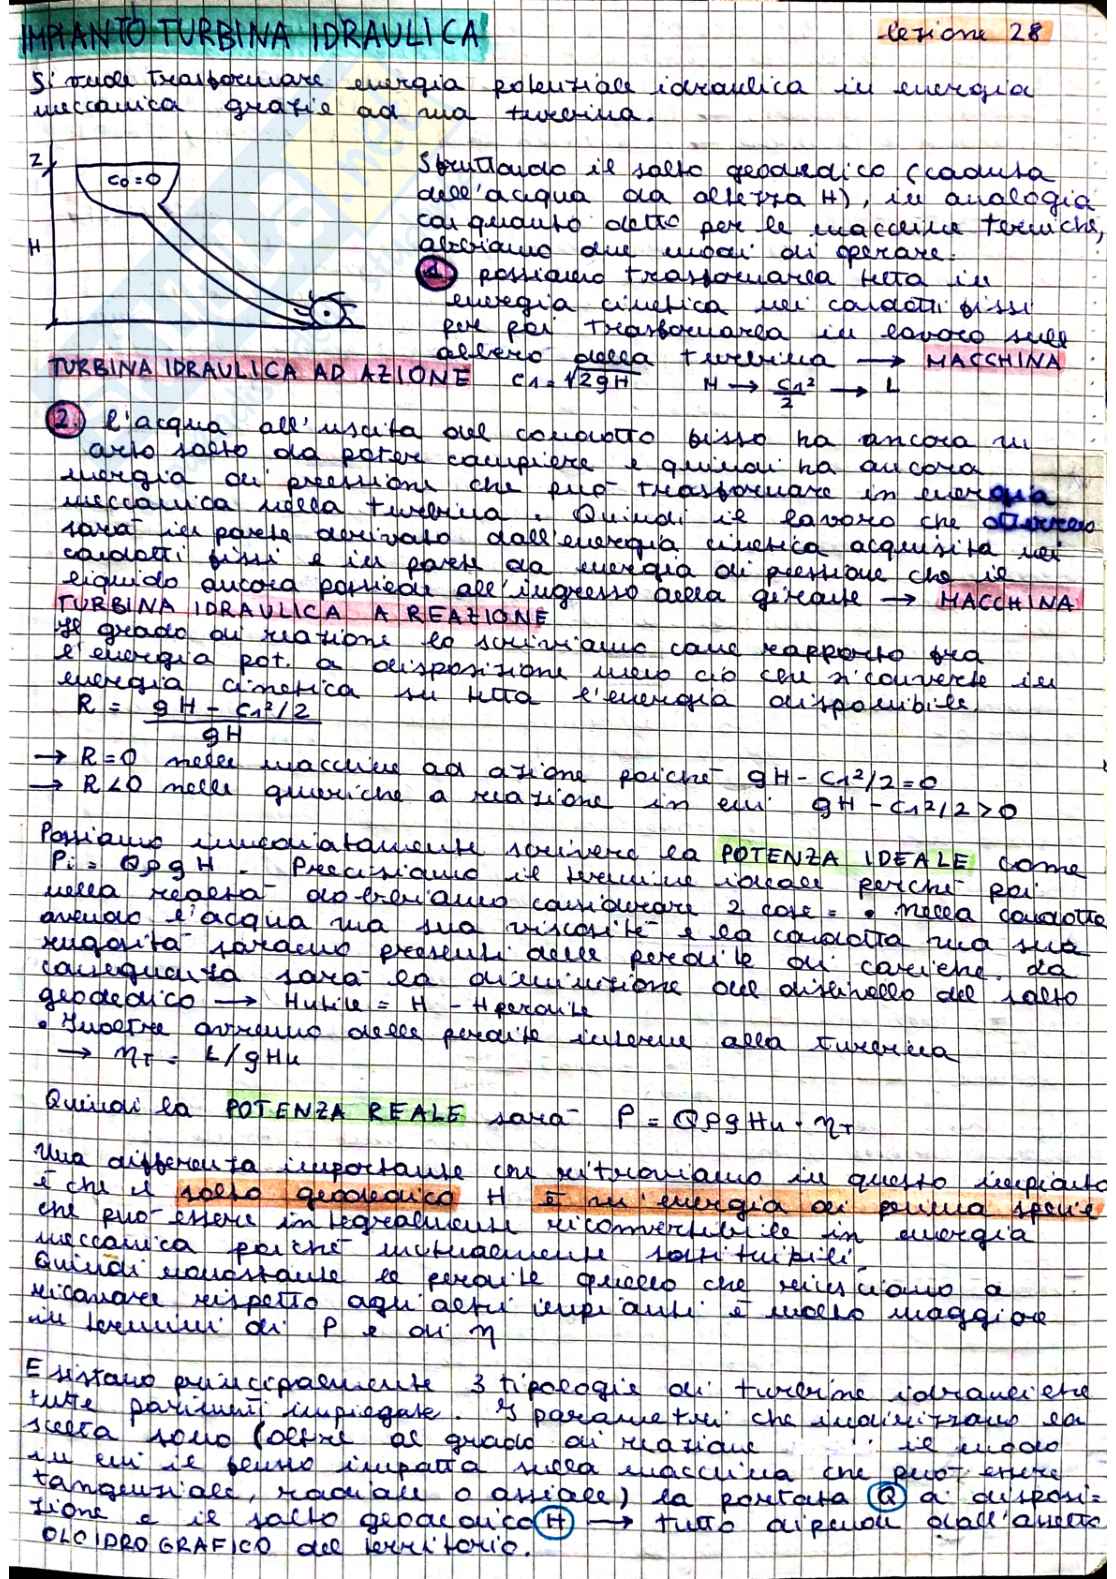 IMPIANTO TURBINA IDRAULICA
lezione 28
Si vuole trasformare energia potenziale idraulica in energia
meccanica grazie ad una turbina.
Z
C0 = 0
H
Sfruttando il salto geodedico (caduta
dell'acqua da altezza H), in analogia
con quanto detto per le macchine termiche,
abbiamo due modi di operare:
1. possiamo trasformarla tutta in
energia cinetica nei condotti fissi
per poi trasformarla in lavoro sull
albero della turbina → MACCHINA
TURBINA IDRAULICA AD AZIONE C1 = √2gH H → C1²/2 → L
2. L'acqua all'uscita del condotto fisso ha ancora un
certo salto da poter compiere e quindi ha ancora
energia di pressione che può trasformare in energia
meccanica nella turbina. Quindi il lavoro che otterremo
sarà in parte derivato dall'energia cinetica acquisita nei
condotti fissi e in parte da energia di pressione che il
liquido ancora possiede all'ingresso della girante → MACCHINA
TURBINA IDRAULICA A REAZIONE
Il grado di reazione lo scriviamo come rapporto fra
l'energia pot. a disposizione meno ciò che si converte in
energia cinetica su tutta l'energia disponibile.
R = gH - C1²/2 / gH
→ R=0 nelle macchine ad azione poichè gH - C1²/2 = 0
→ R<0 nelle generiche a reazione in cui gH - C1²/2 > 0
Possiamo immediatamente scrivere la POTENZA IDEALE come
Pi = QρgH. Precisiamo il termine ideale perchè poi
nella realtà dobbiamo considerare 2 cose: • Nella condotta
avendo l'acqua una sua viscosità e la condotta una sua
rugosità saranno presenti delle perdite di cariche. da
conseguenza sarà la diminuzione del dislivello del salto
geodedico → Hutile = H - Hperdite
• Inoltre avremo delle perdite interne alla turbina
→ ηT = L/gHu
Quindi la POTENZA REALE sarà P = QρgHu · ηT
Una differenza importante che ritroviamo in questo impianto
è che il salto geodedico H è un'energia di prima specie
che può essere integralmente riconvertibile in energia
meccanica poichè mutuamente sostituibili.
Quindi nonostante le perdite quello che riusciamo a
ricavare rispetto agli altri impianti è molto maggiore
in termini di P e di η
Esistono principalmente 3 tipologie di turbine idrauliche
tutte parimenti impiegate. I parametri che indirizzano la
scelta sono (oltre al grado di reazione il modo
in cui il fluido impatta sulla macchina che può essere
tangenziale, radiale o assiale) la portata Q a disposi=
zione e il salto geodedico H → tutto dipende dall'assetto
OLOIDROGRAFICO del territorio.